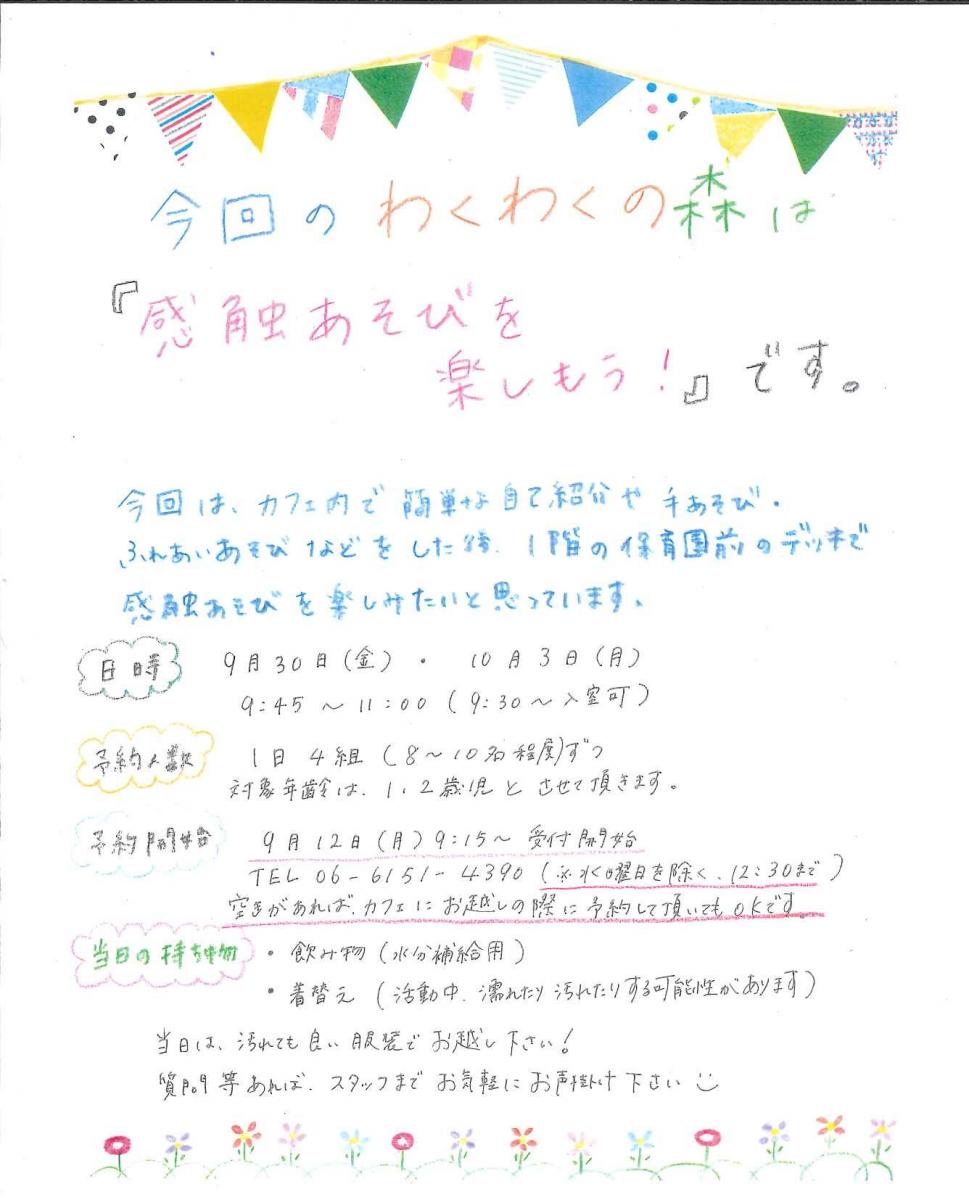 今回のわくわくの森は
『感触あそびを
楽しもう！』です。
今回は、カフェ内で簡単な自己紹介や手あそび・
ふれあいあそびなどをした後、1階の保育園前のデッキで
感触あそびを楽しみたいと思っています。
日時 9月30日(金)・10月3日(月)
9:45～11:00(9:30～入室可)
予約人数 1日4組(8～10名程度)ずつ
対象年齢は、1.2歳児とさせて頂きます。
予約開始 9月12日(月)9:15～受付開始
TEL 06-6151-4390(※水曜日を除く、12:30まで)
空きがあれば、カフェにお越しの際に予約して頂いてもOKです。
当日の持ち物 ・飲み物(水分補給用)
・着替え(活動中、濡れたり汚れたりする可能性があります)
当日は、汚れても良い服装でお越し下さい！
質問等あれば、スタッフまでお気軽にお声掛け下さい